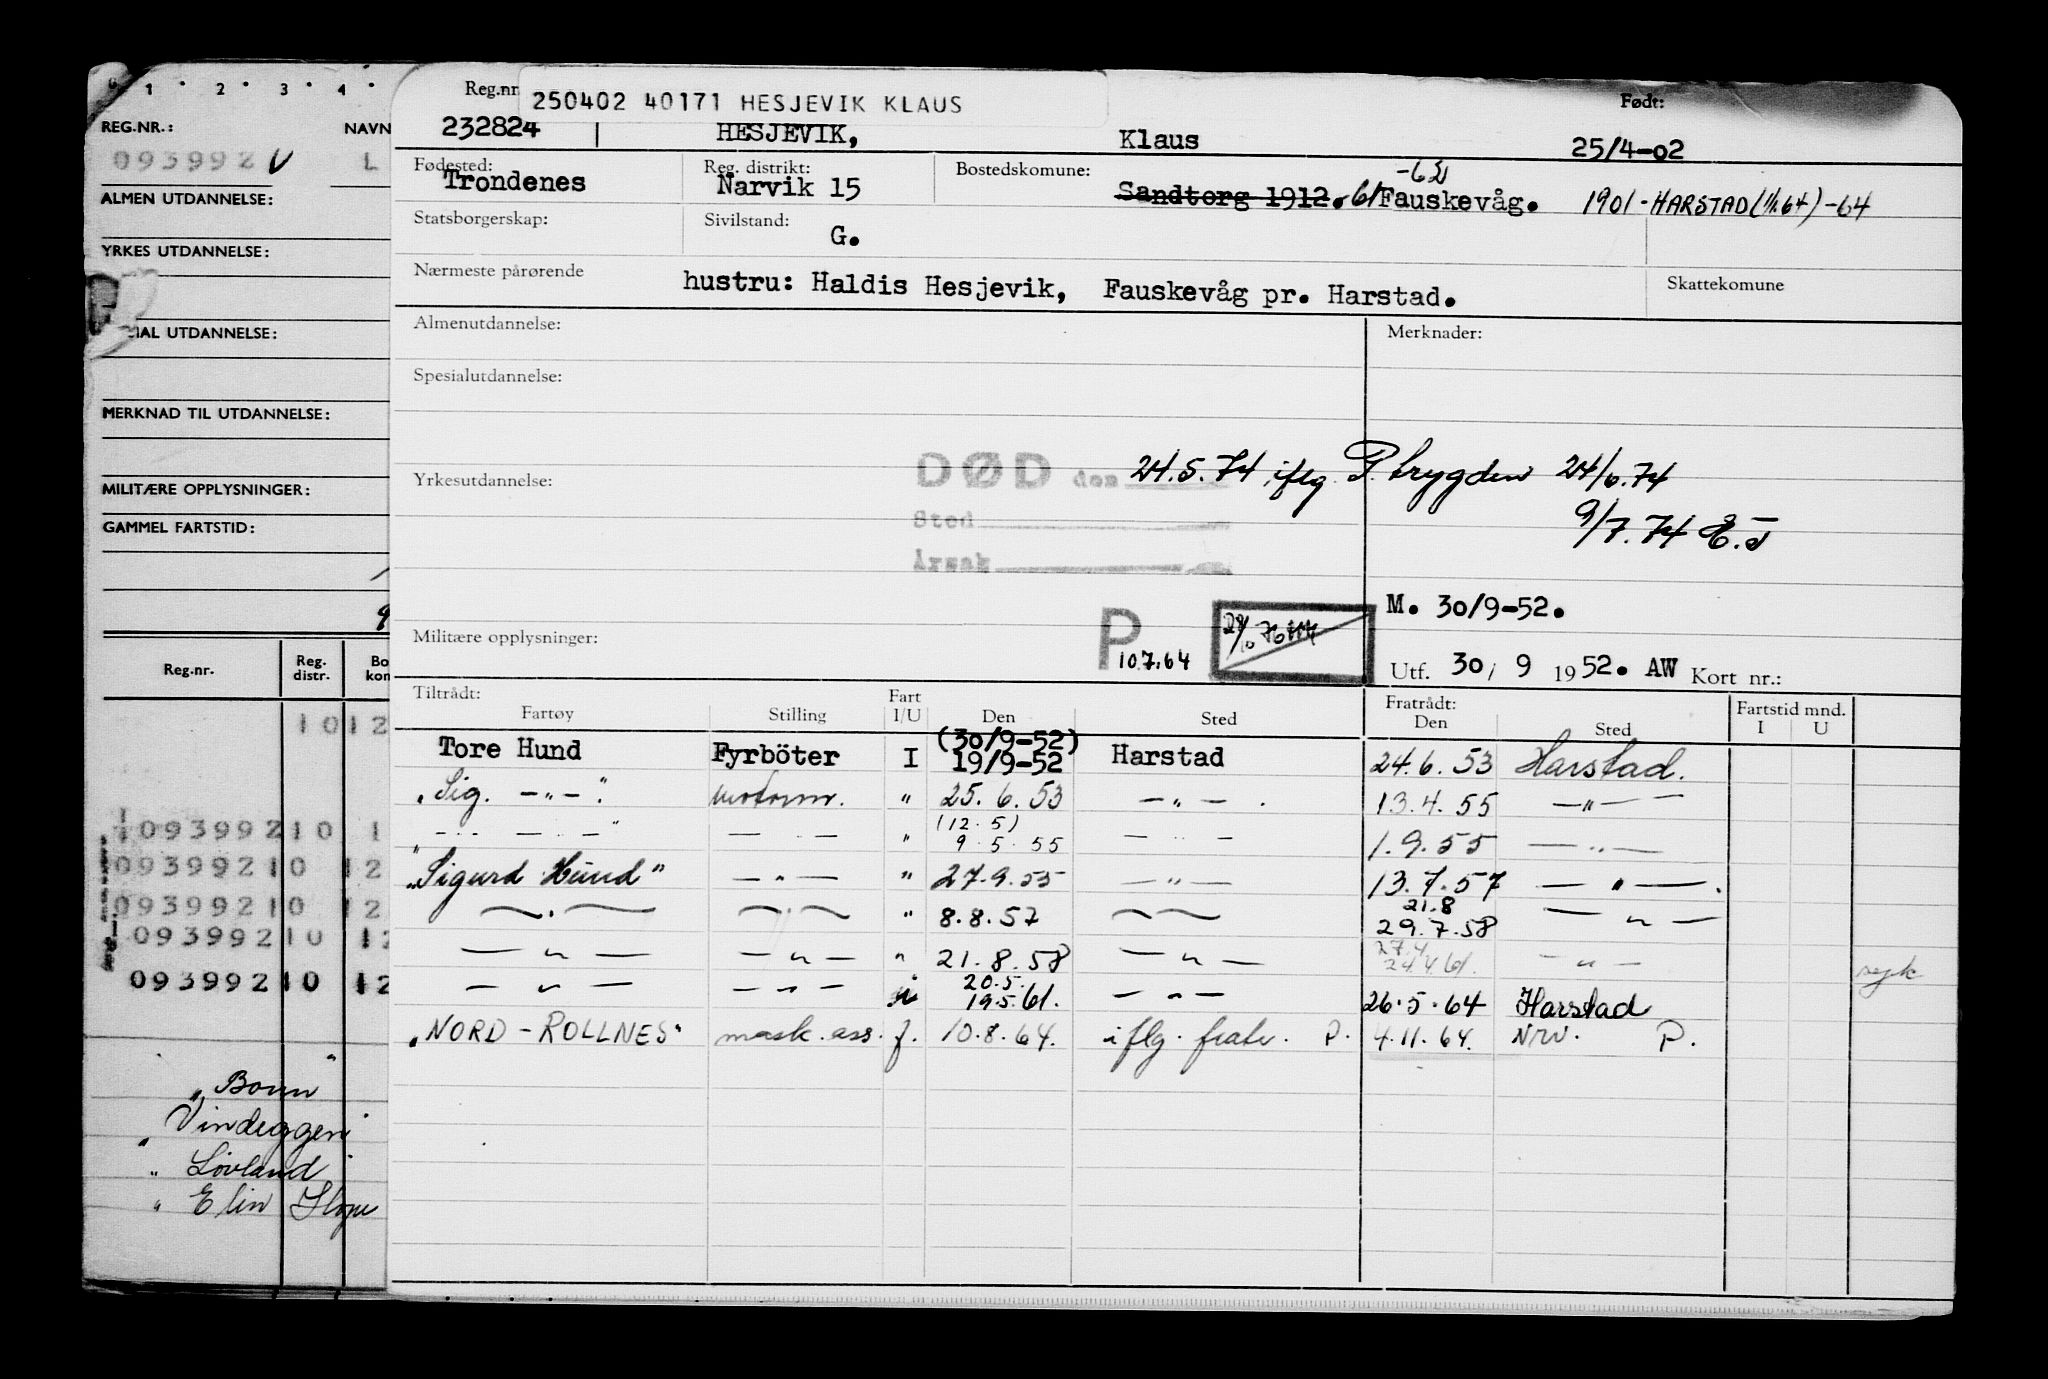 1 2 3 4
REG.NR.: NAVN
093992 V L
ALMEN UTDANNELSE:
YRKES UTDANNELSE:
IAL UTDANNELSE:
MERKNAD TIL UTDANNELSE:
MILITÆRE OPPLYSNINGER:
GAMMEL FARTSTID:
9
Reg.nr. Reg. distr. Bo kon
1012
093992 10 1
093992 10 12
093992 10 12
093992 10 12
093992 10 12
"
" Bonn "
" Vindeggen "
" Lovland "
" Elin Hope
Reg.nr
250402 40171 HESJEVIK KLAUS
Født:
232824 HESJEVIK, Klaus 25/4-02
Fødested: Reg. distrikt: Bostedskomune:
Trondenes Narvik 15 Sandtorg 1912. -61 Fauskevåg. -62 1901 - HARSTAD (1/1 64) -64
Statsborgerskap: Sivilstand:
G.
Nærmeste pårørende hustru: Haldis Hesjevik, Fauskevåg pr. Harstad. Skattekomune
Almenutdannelse: Merknader:
Spesialutdannelse:
Yrkesutdannelse: DØD den 24.5.74, iflg. P. trygden 24/6.74
Sted 9/7.74 E.J
Årsak
M. 30/9-52.
Militære opplysninger: P 10.7.64 28/10 76
Utf. 30/ 9 1952. AW Kort nr.:
Tiltrådt: Fratrådt: Fartstid mnd.
Fartøy Stilling Fart I/U Den Sted Den Sted I U
Tore Hund Fyrböter I (30/9-52) 19/9-52 Harstad 24.6.53 Harstad.
"Sig. -"-" motorm. " 25.6.53 -"- . 13.4.55 -"-
-"- -"- -"- " (12.5) 9.5.55 -"- 1.9.55 -"-
"Sigurd Hund" -"- " 27.9.55 -"- 13.7.57 -"-.
-"- -"- " 8.8.57 -"- 21.8 29.7.58 -"-
-"- -"- " 21.8.58 -"- 27.4. 24.4.61. -"- syk
-"- -"- i 20.5. 19.5.61. -"- 26.5.64 Harstad
"NORD-ROLLNES" mask.ass. f. 10.8.64. iflg. fratr. P. 4.11.64. NRV. P.